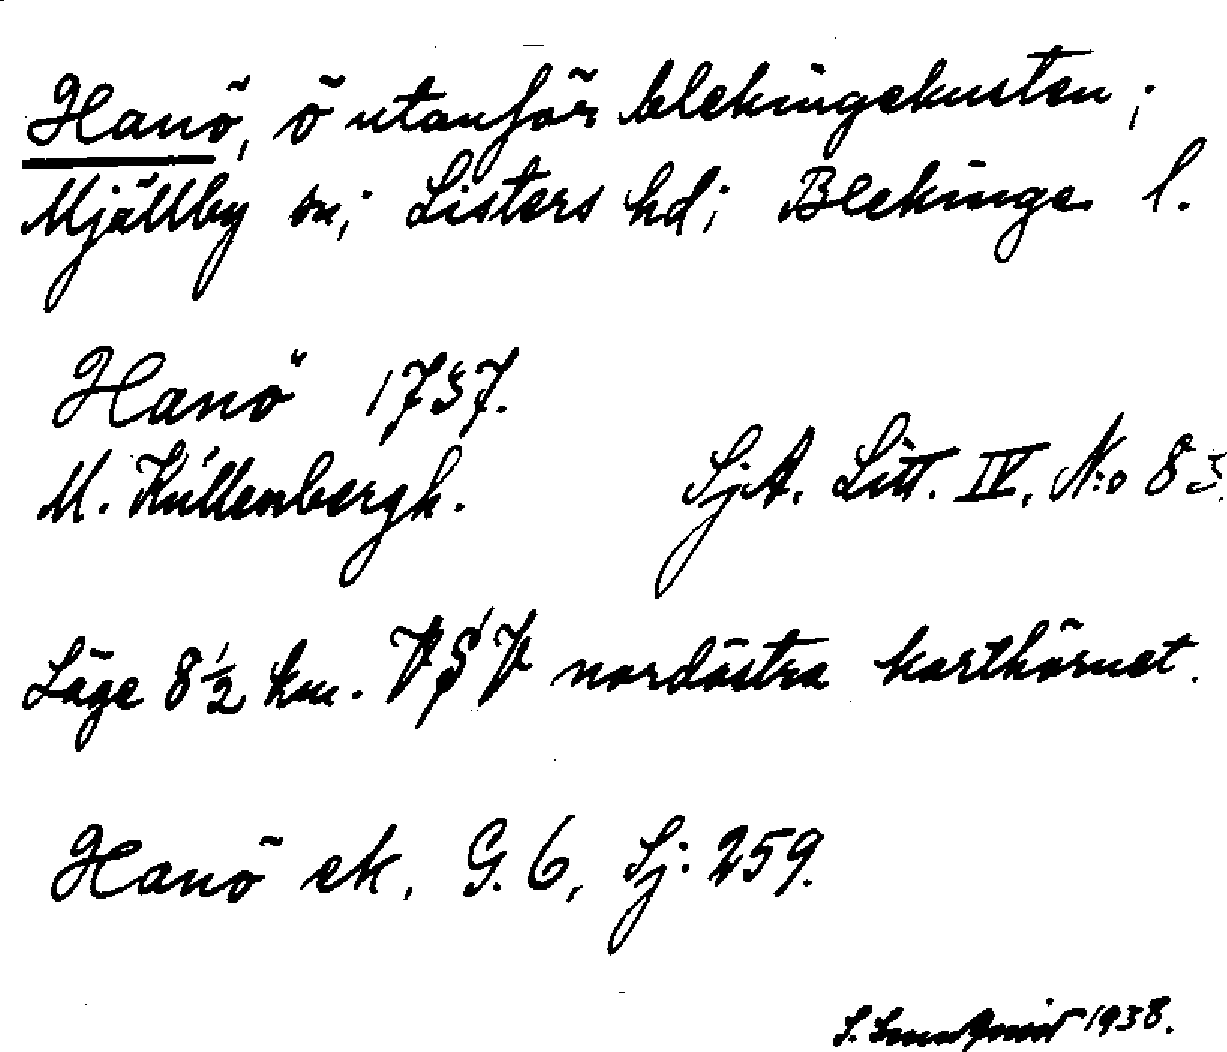 Hanö, ö utanför blekingekusten;
Mjällby sn; Listers hd; Blekinge l.
Hanö 1737.
M. Kullenbergh. SjA. Litt. IV, N:o 83.
Läge 8½ km. VSV nordöstra karthörnet.
Hanö ek. G. 6, Sj: 259.
S. 1938.